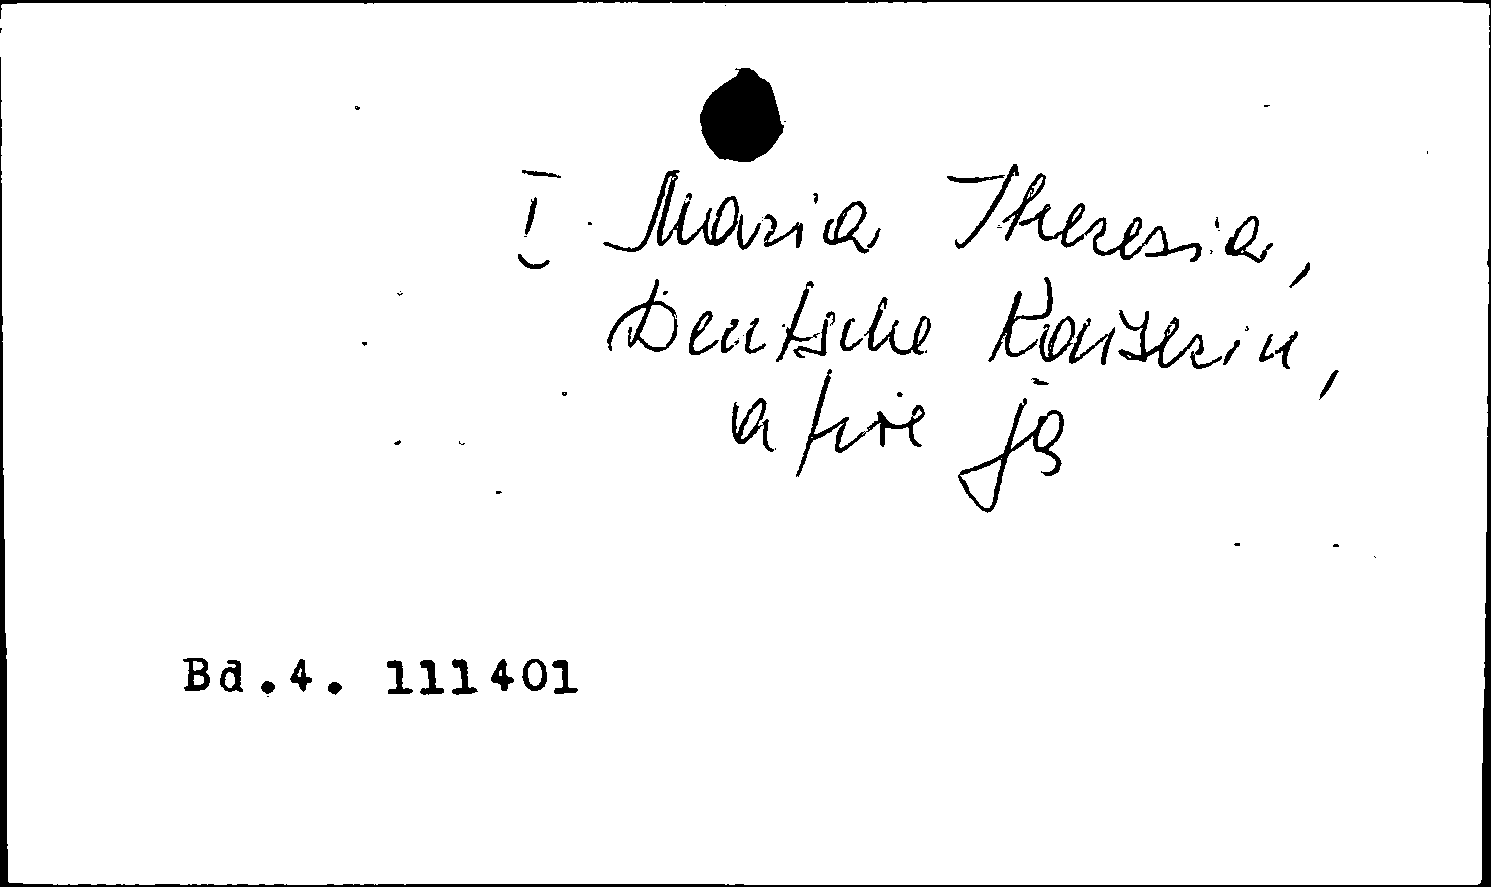 I Maria Theresia,
Deutsche Kaiserin,
ja
Bd.4. 111401